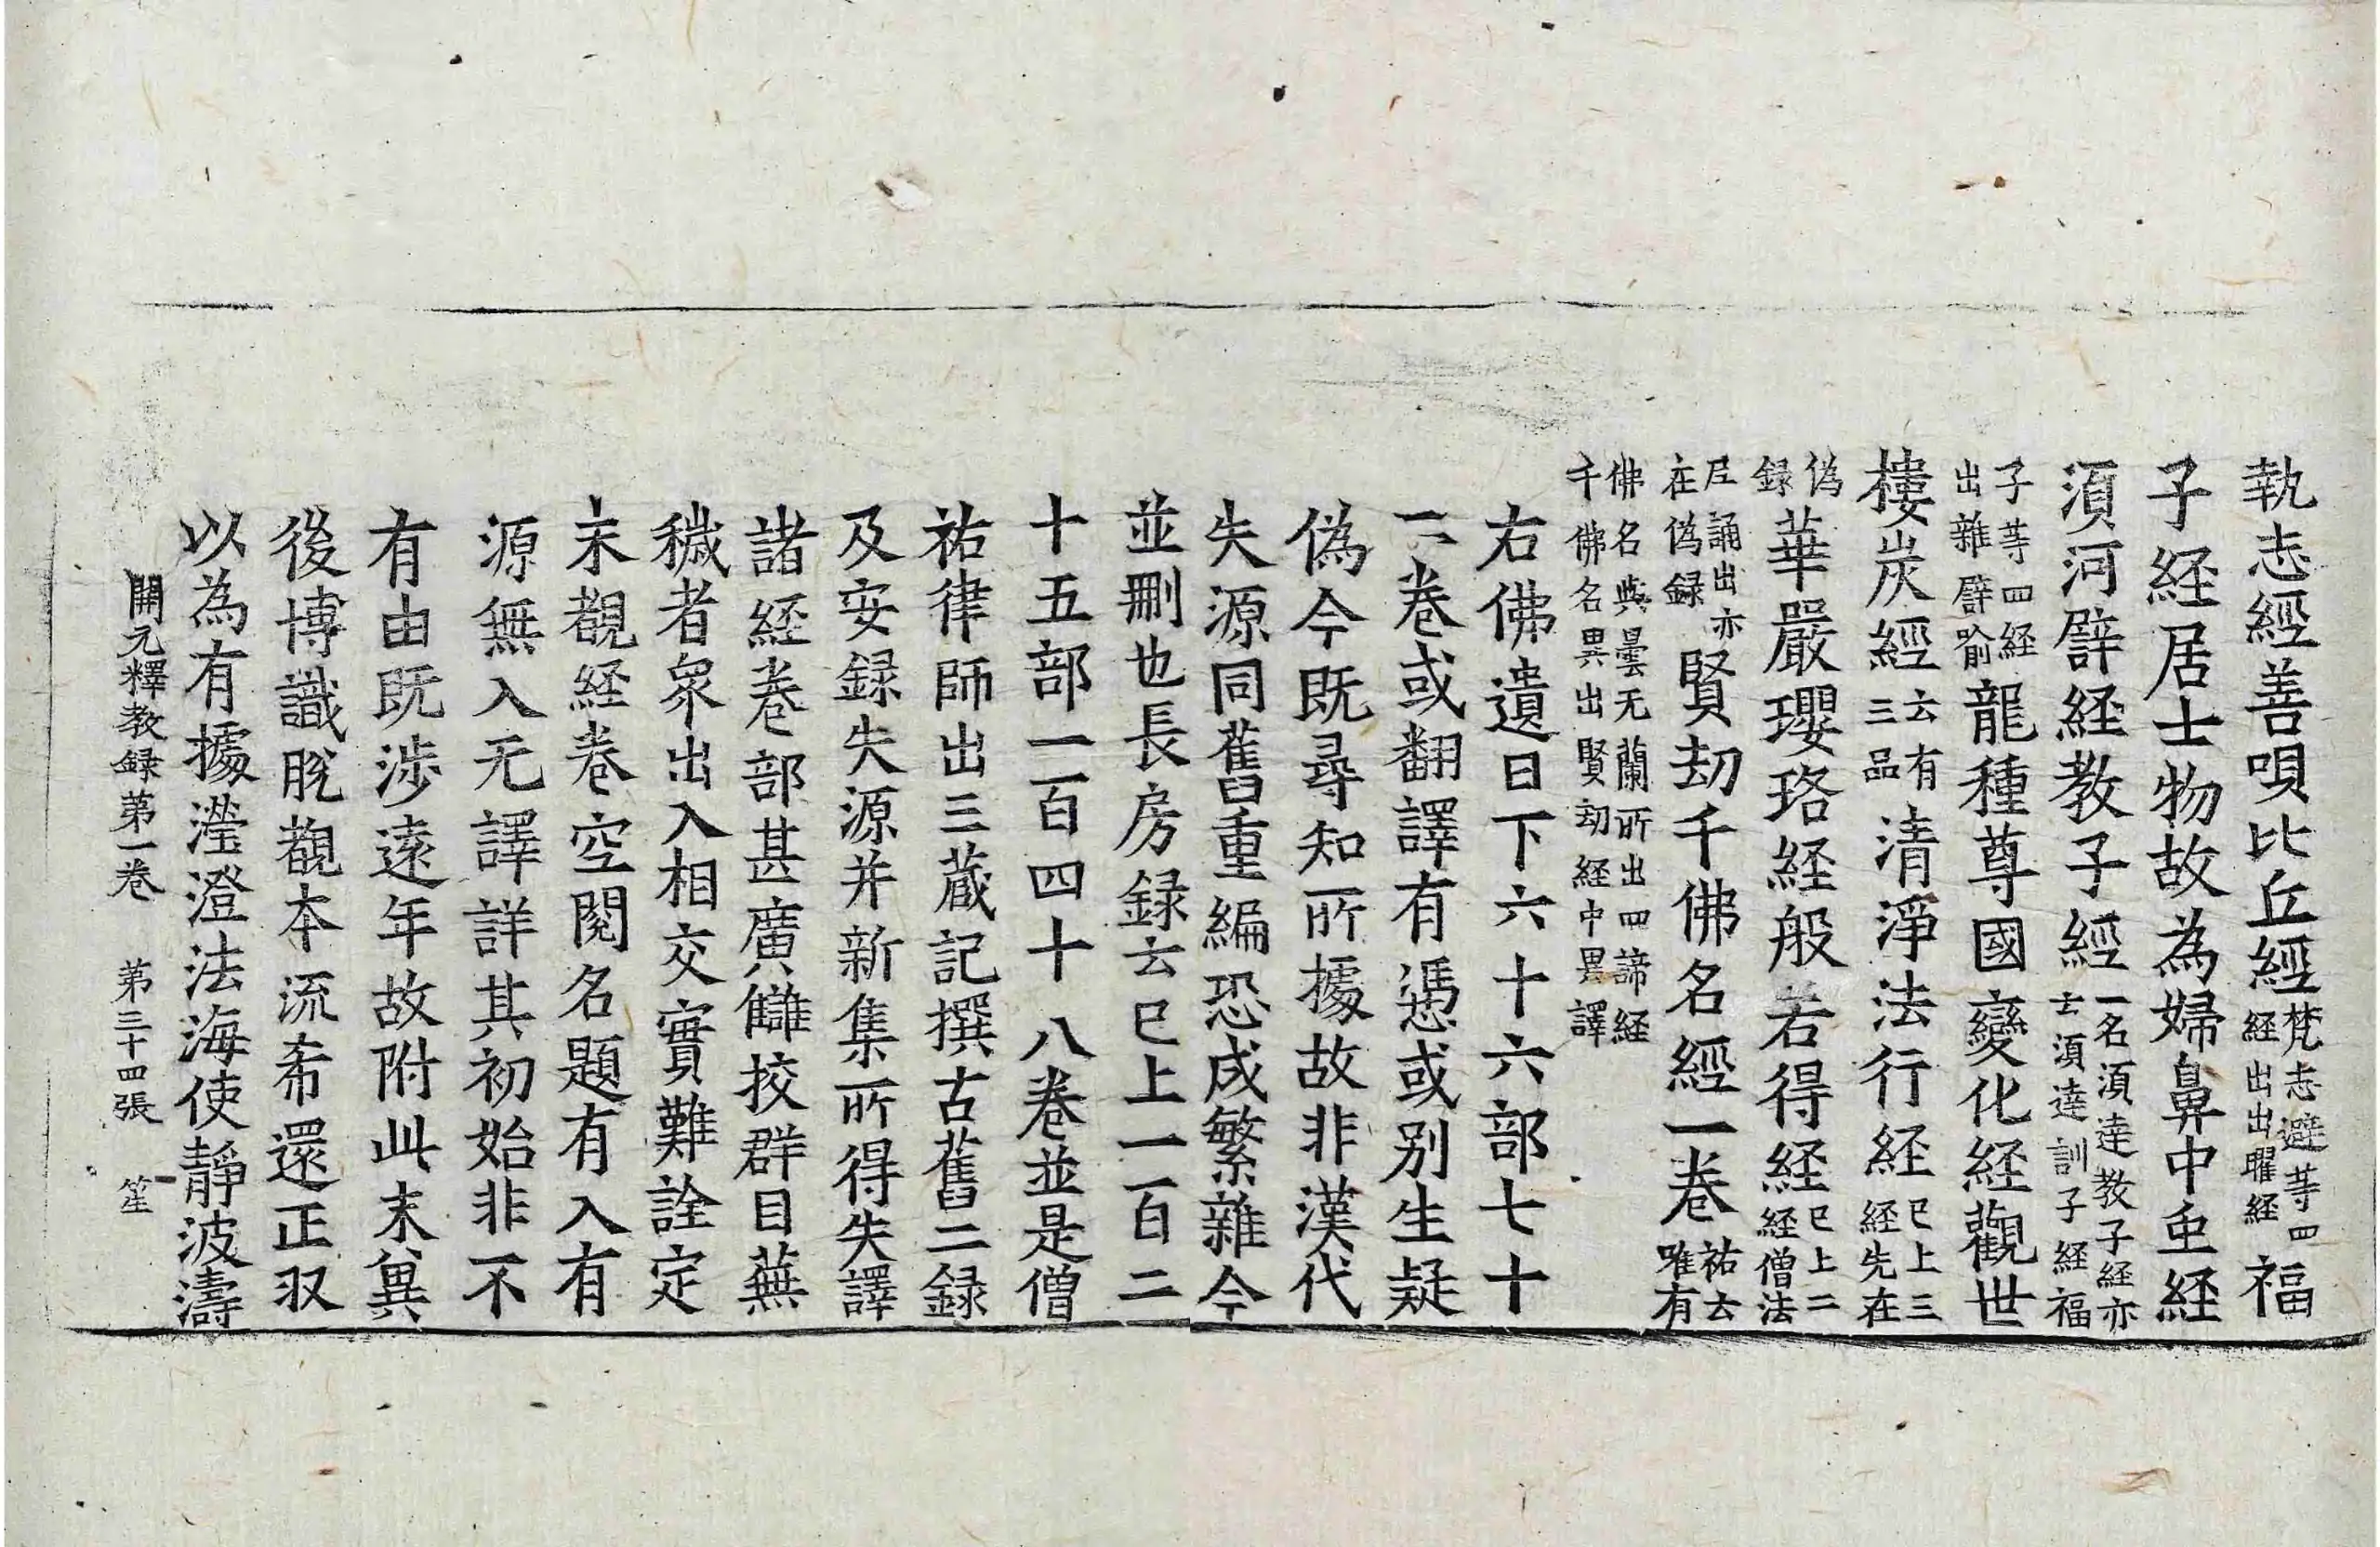 執志經善唄比丘經梵志避等四經出出曜経福
子経居士物故為婦鼻中虫経
湏河譬経教子經一名湏達教子経亦云湏達訓子経福
子等四経出雜譬喻龍種尊國變化経觀世
樓炭經云有三品清淨法行経已上三経先在
偽録華嚴瓔珞経般若得経已上二経僧法
尼誦出亦在偽録賢劫千佛名經一卷祐云唯有
佛名與曇无蘭所出四諦経千佛名異出賢劫経中異譯
右佛遺日下六十六部七十
二卷或翻譯有憑或别生疑
偽今既尋知所據故非漢代
失源同舊重編恐成繁雜今
並刪也長房録云已上一百二
十五部一百四十八卷並是僧
祐律師出三蔵記撰古舊二録
及安録失源并新集所得失譯
諸経卷部甚廣讎挍群目蕪
穢者衆出入相交實難詮定
未覩経卷空閱名題有入有
源無入无譯詳其初始非不
有由既涉遠年故附此末兾
後博識脫覩本流希還正収
以為有據瀅澄法海使靜波濤
開元釋教録第一卷 第三十四張 笙